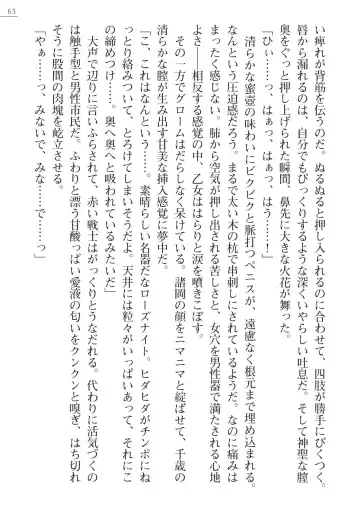 63
い痺れが背筋を伝うのだ。ぬるぬると押し入られるのに合わせて、四肢が勝手にびくつく。
唇から漏れるのは、自分でもびっくりするような深くいやらしい吐息だ。そして神聖な膣
奥をぐっと押し上げられた瞬間、鼻先に大きな火花が舞った。
「ひぃ……っ、はぁっ、はぁっ、はう……！」
清らかな蜜壺の味わいにビクビクと脈打つペニスが、遠慮なく根元まで埋め込まれる。
なんという圧迫感だろう。まるで太い木の杭で串刺しにされているようだ。なのに痛みは
まったく感じない。肺から空気が押し出される苦しさと、女穴を男性器で満たされる心地
よさ――相反する感覚の中、乙女ははらりと涙を噴きこぼす。
その一方でグロームはだらしなく呆けている。諸岡の顔をニマニマと綻ばせて、千歳の
清らかな膣が生み出す甘美な挿入感覚に夢中だ。
「こ、これはなんという……。素晴らしい名器だなローズナイト。ヒダヒダがチンポにね
っとり絡みついて、とろけてしまいそうだよ。天井には粒々がいっぱいあって、それにこ
の締めつけ……。奥へ奥へと吸われているみたいだ」
大声で辺りに言いふらされて、赤い戦士はがっくりとうなだれる。代わりに活気づくの
は触手型と男性市民だ。ふわりと漂う甘酸っぱい愛液の匂いをクンクンと嗅ぎ、はち切れ
そうに股間の肉塊を屹立させる。
「やぁ……っ、みないで、みな……で……っ」